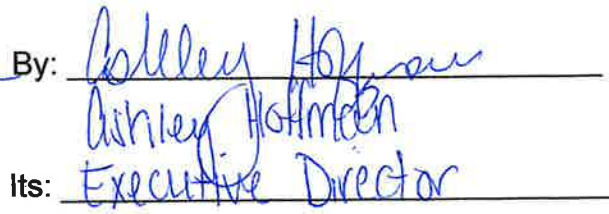 By: Ashley Hoffman
Ashley Hoffman
Its: Executive Director